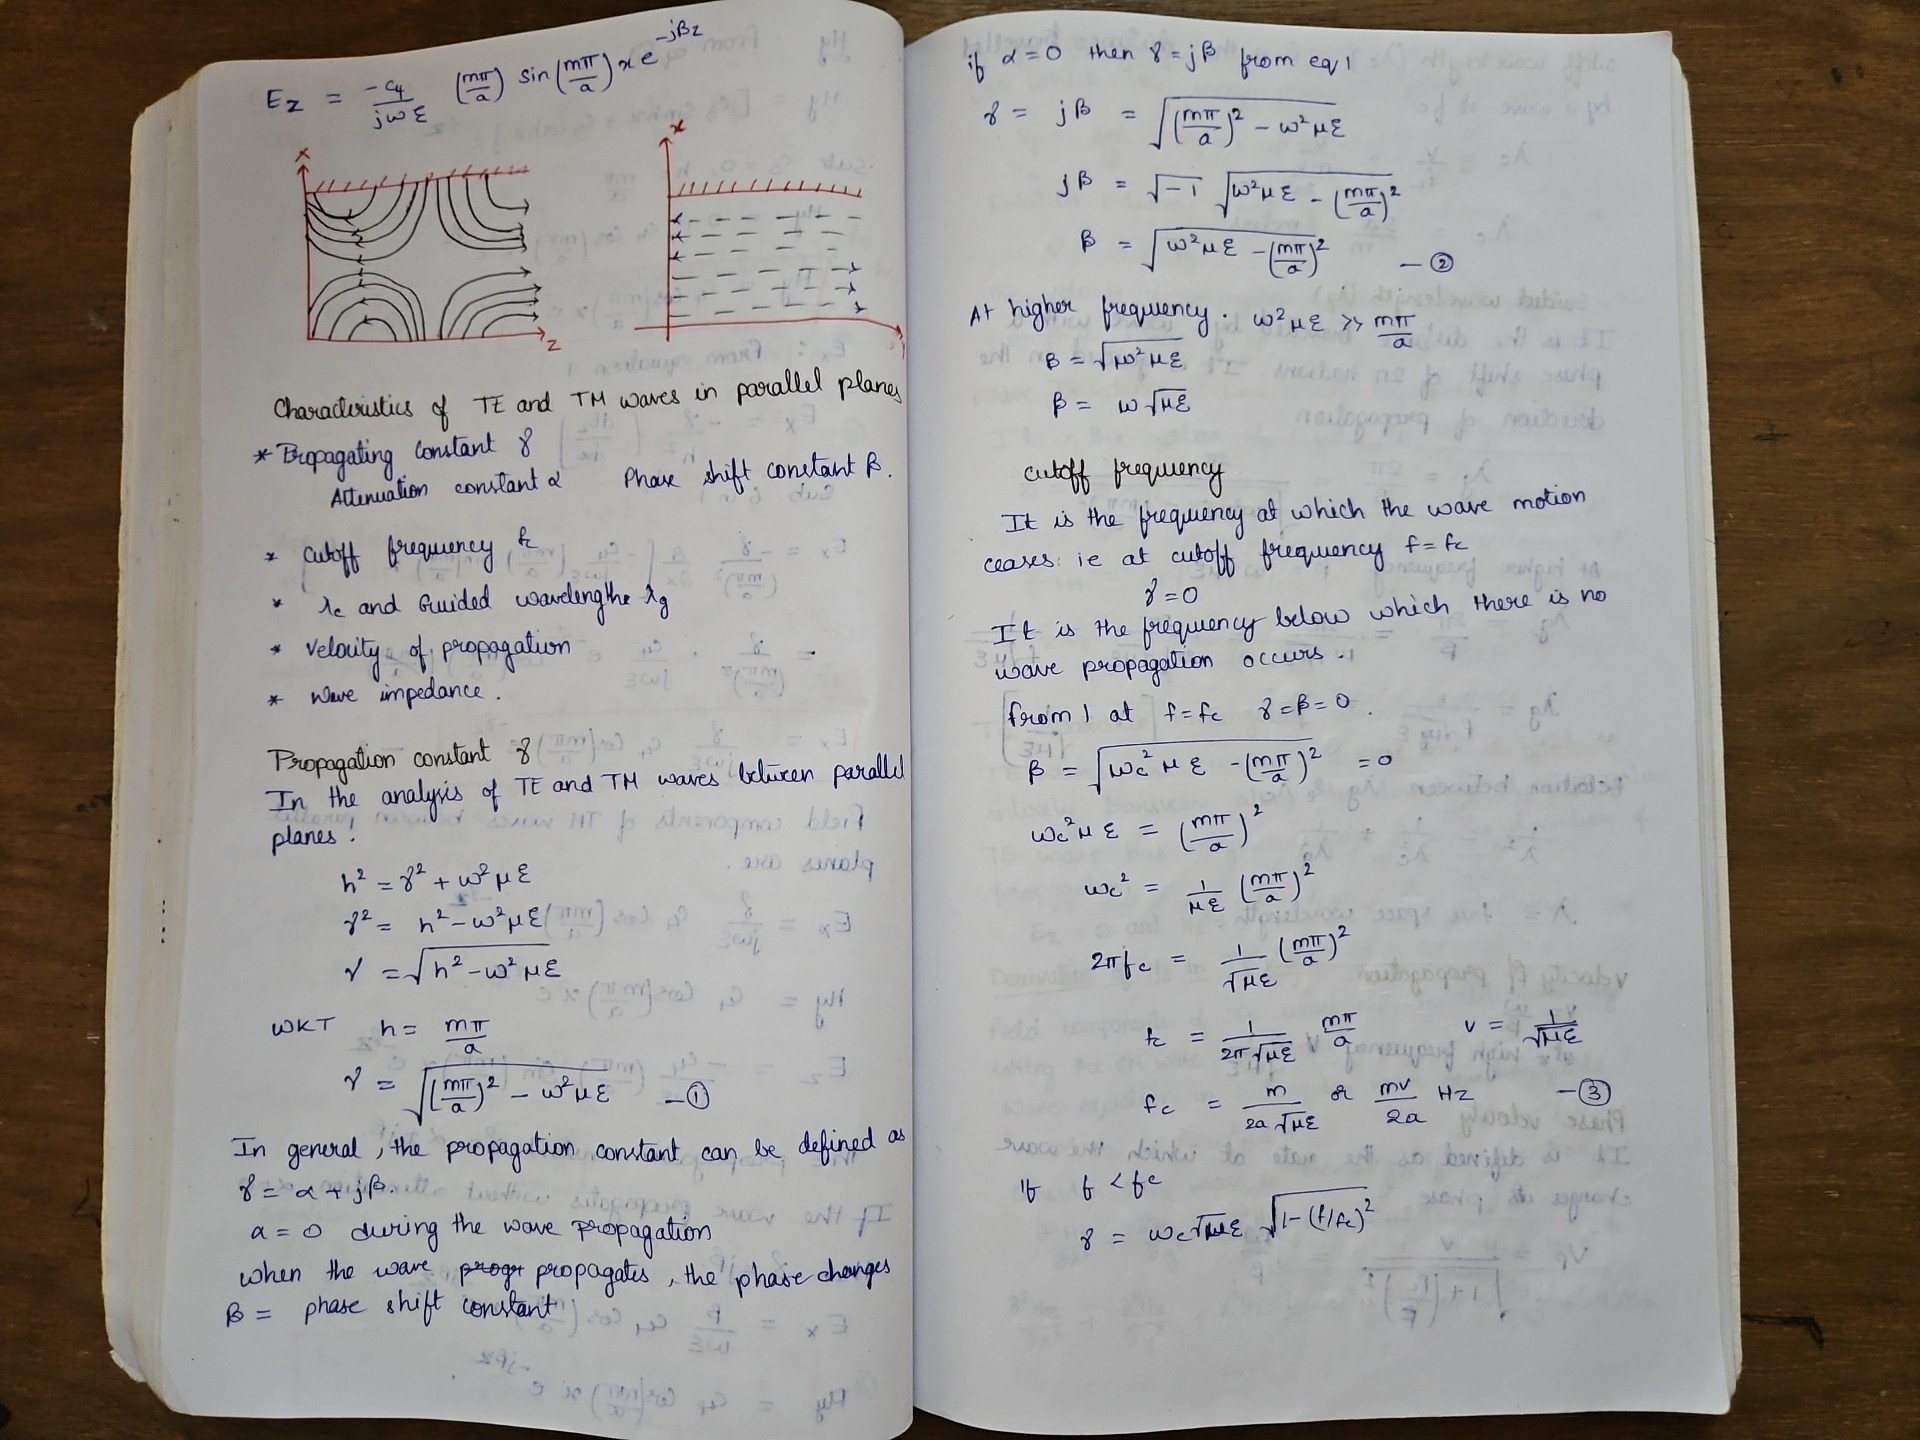 Ez = -C4/jωε (mπ/a) sin(mπ/a)x e^-jβz
x
z
x
Characteristics of TE and TM waves in parallel planes
* Propagating constant γ
Attenuation constant α Phase shift constant β.
* Cutoff frequency fc
* λc and Guided wavelengthe λg
* velocity of propagation
* Wave impedance.
Propagation constant γ
In the analysis of TE and TM waves between parallel
planes!
h² = γ² + ω²με
γ² = h² - ω²με
γ = √(h² - ω²με)
WKT h = mπ/a
γ = √((mπ/a)² - ω²με) —①
In general, the propagation constant can be defined as
γ = α + jβ.
α = 0 during the wave propagation
when the wave propagates, the phase changes
β = phase shift constant
if α = 0 then γ = jβ from eq 1
γ = jβ = √((mπ/a)² - ω²με)
jβ = √-1 √(ω²με - (mπ/a)²)
β = √(ω²με - (mπ/a)²) —②
At higher frequency. ω²με >> mπ/a
β = √(ω²με)
β = ω√με
cutoff frequency
It is the frequency at which the wave motion
ceases. ie at cutoff frequency f = fc
γ = 0
It is the frequency below which there is no
wave propagation occurs.
from 1 at f = fc γ = β = 0.
β = √(ωc²με - (mπ/a)²) = 0
ωc²με = (mπ/a)²
ωc² = 1/με (mπ/a)²
2πfc = 1/√με (mπ/a)²
fc = 1/2π√με mπ/a v = 1/√με
fc = m/2a√με or mv/2a Hz —③
If f < fc
γ = ωc√με √(1-(f/fc)²)